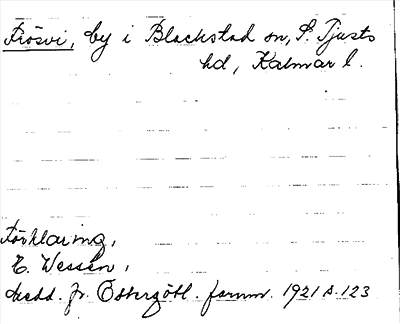 Frösvi, by i Blackstad sn, S. Tjusts
hd, Kalmar l.
Förklaring,
E. Wessén,
Medd. fr. Östergötl. fornm. 1921 s. 123